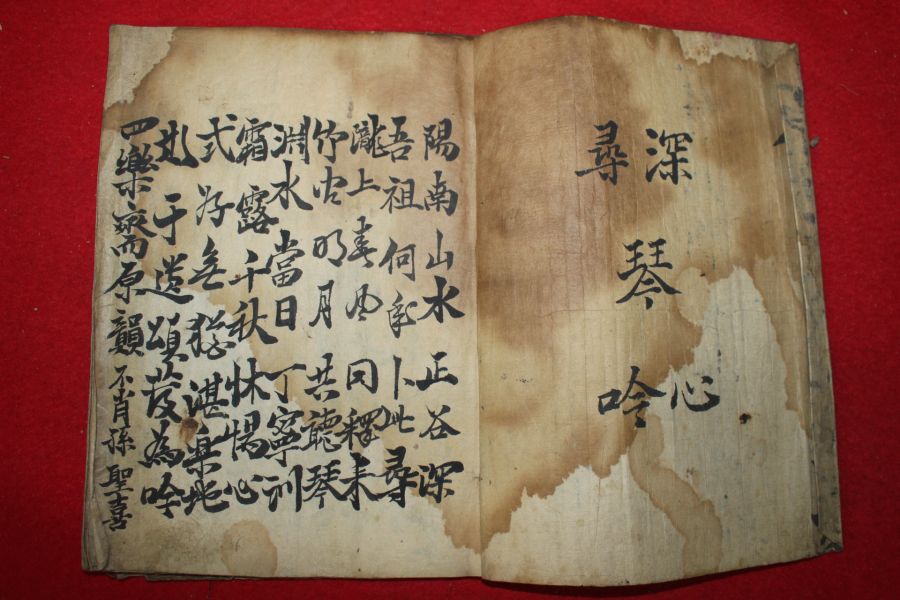 深
尋
琴
心
吟
陽南山水正谷深
吾祖何年卜此尋
瀧上春風同釋耒
竹明月共聽琴
淵水當日丁寧訓
霜露千秋怵惕心
式好無猶湛樂地
于遺頌發為吟
四樂齋原韻 不肖孫 聖喜